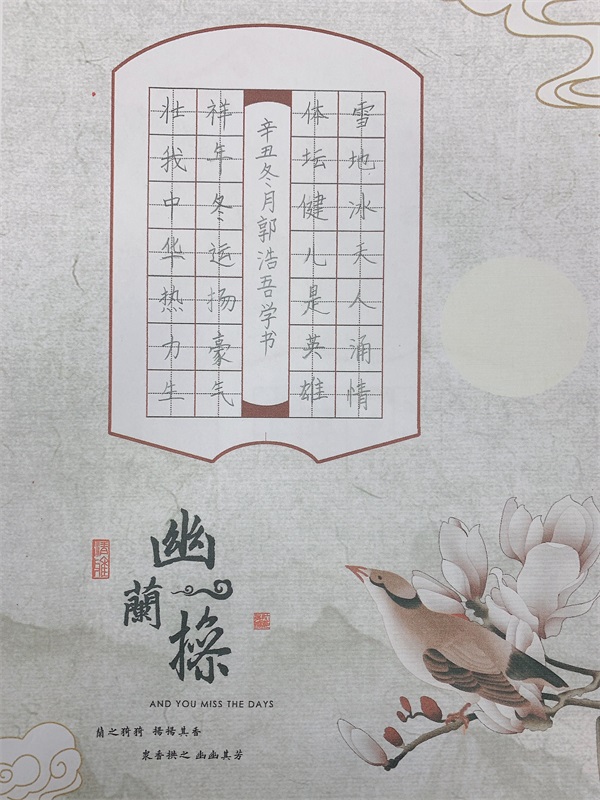 雪地冰天人涌情
体坛健儿是英雄
辛丑冬月郭浩吾学书
祥年冬运扬豪气
壮我中华热力生
幽蘭操
AND YOU MISS THE DAYS
蘭之猗猗 揚揚其香
衆香拱之 幽幽其芳